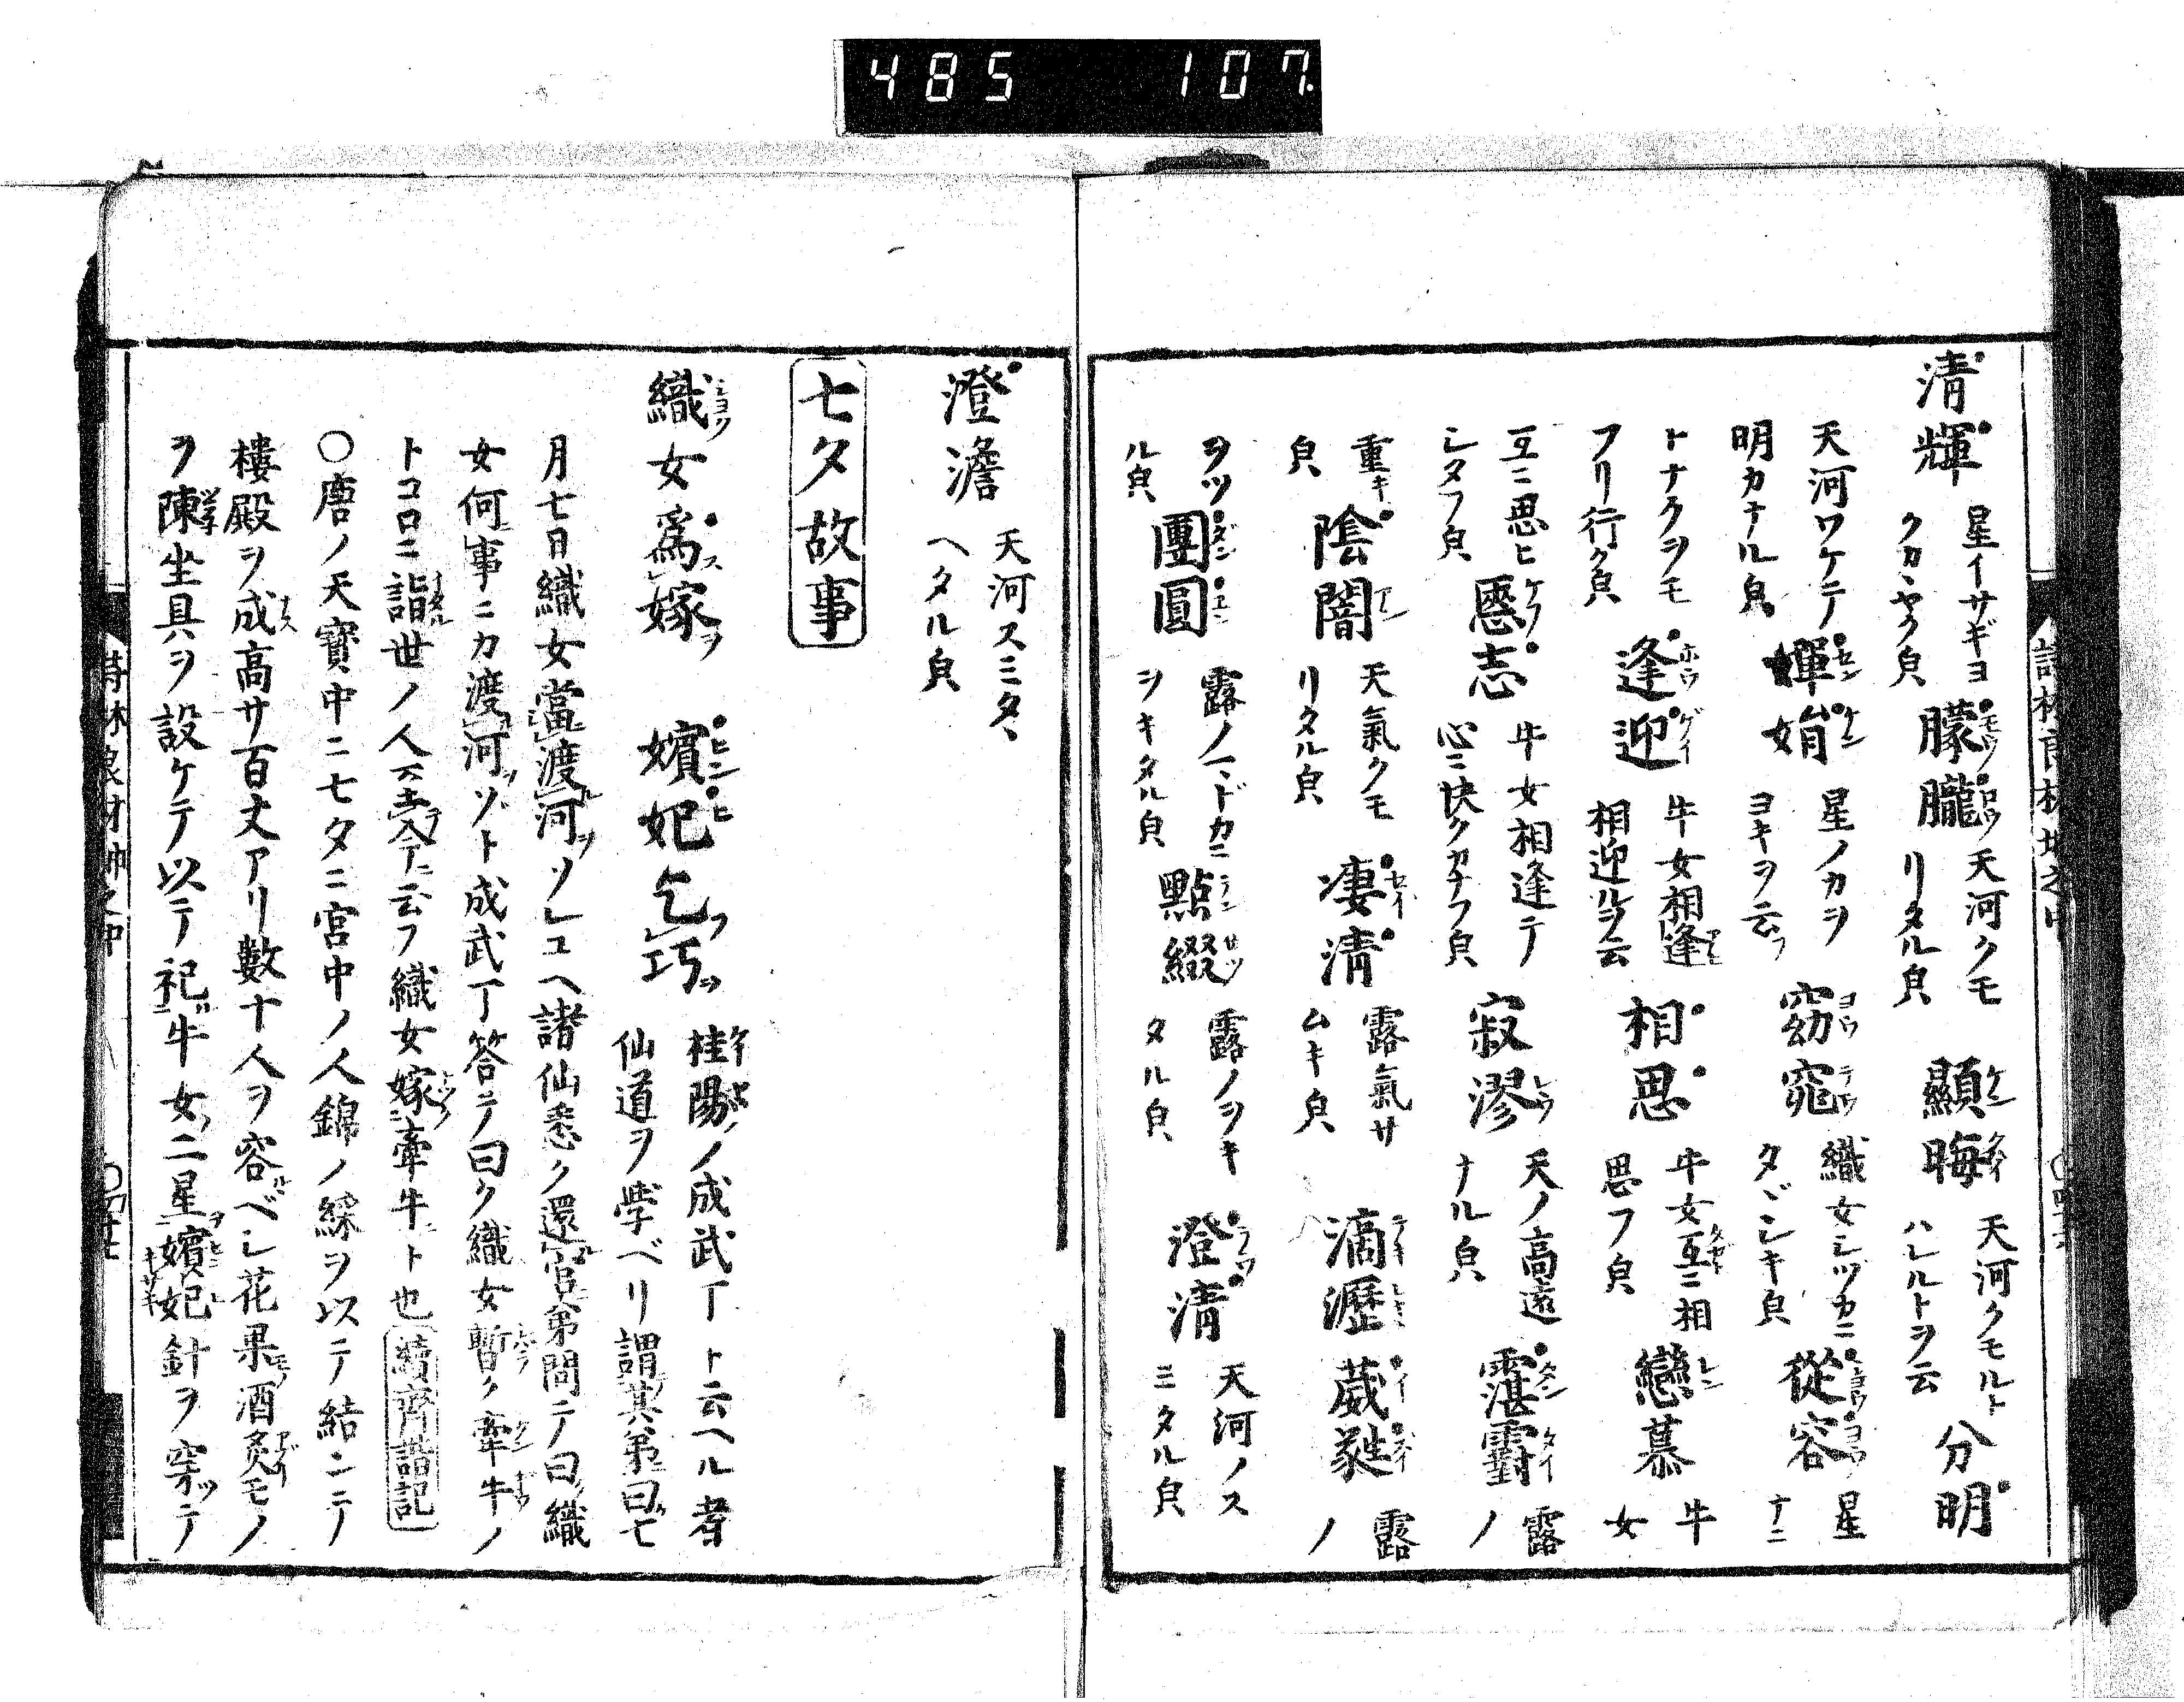 485 107
清輝 星イサギヨクカヽヤク㒵 朦朧 天河クモリタル㒵 顯晦 天河クモルトハレルトヲ云 分明
天河ワケテ明カナル㒵 嬋娟 星ノカヲヨキヲ云フ 窈窕 織女シツカニタヾシキ㒵 從容 星ナニ
トナクヲモフリ行ク㒵 逢迎 牛女相逢相迎ルヲ云 相思 牛女互ニ相思フ㒵 戀慕 牛女
互ニ思ヒシタフ㒵 愜志 牛女相逢テ心ニ快クカナフ㒵 寂漻 天ノ高遠ナル㒵 霮䨴 露ノ
重キ㒵 陰闇 天氣クモリタル㒵 凄清 露氣サムキ㒵 滴瀝 葳蕤 露ノ
ヲツル㒵 團圓 露ノノドカニヲキタル㒵 點綴 露ノヲキタル㒵 澄清 天河ノスミタル㒵
澄澹 天河スミタヽヘタル㒵
七夕故事
織女爲嫁 嬪妃乞巧 桂陽ノ成武丁ト云ヘル者仙道ヲ學ベリ謂其弟曰七
月七日織女當渡河ソレユヘ諸仙悉ク還官弟問テ曰織
女何事ニカ渡河ゾト成武丁答テ曰ク織女暫ク牽牛ノ
トコロニ詣世ノ人至今云フ織女嫁牽牛ト也 續齊諧記
〇唐ノ天寶中ニ七夕ニ宮中ノ人錦ノ綵ヲ以テ結ンテ
樓殿ヲ成高サ百丈アリ數十人ヲ容ベシ花果酒炙モノ
ヲ陳坐具ヲ設ケテ以テ祀牛女二星嬪妃針ヲ穿テ